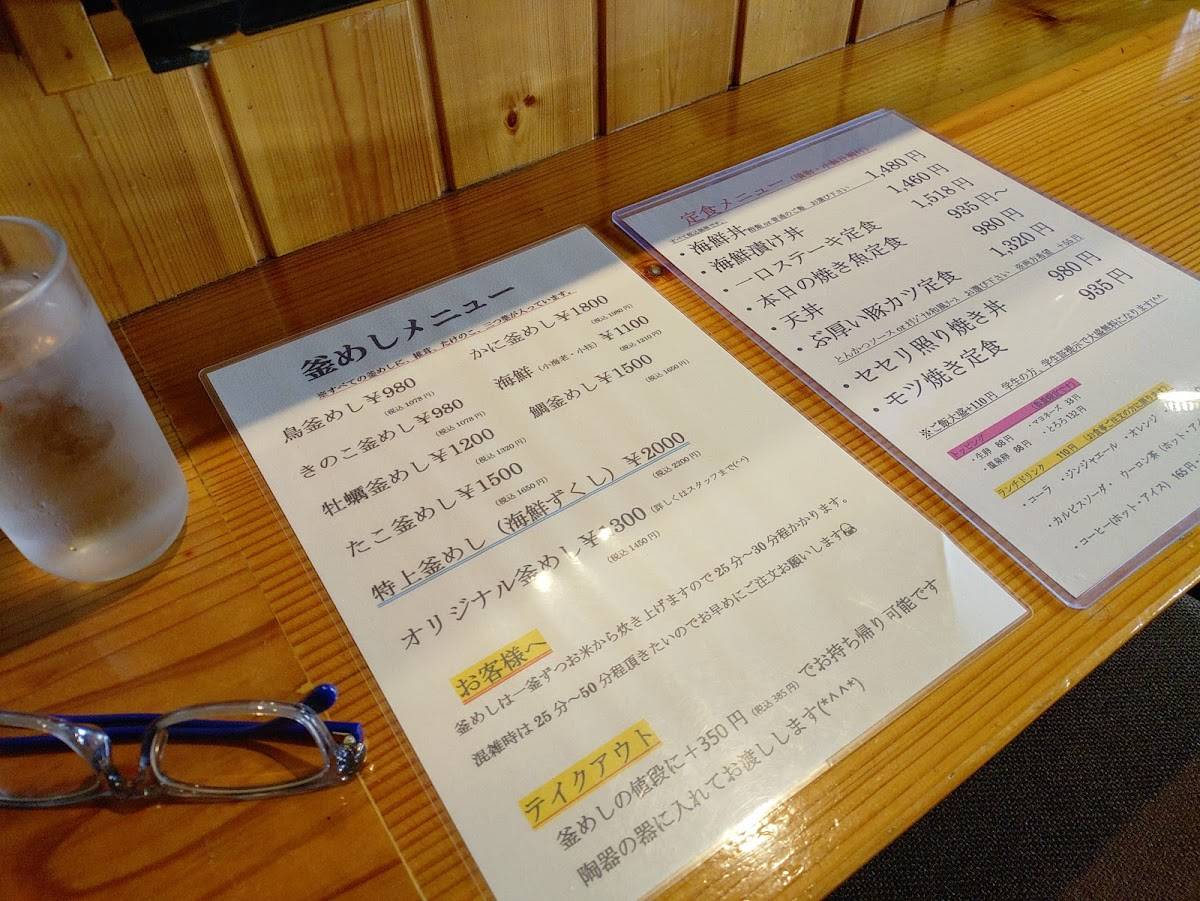 釜めしメニュー
※すべての釜めしに、椎茸、たけのこ、三つ葉が入っています。
鳥釜めし￥980
(税込 1078 円)
かに釜めし￥1800
(税込 1980 円)
きのこ釜めし￥980
(税込 1078 円)
海鮮（小海老・小柱）￥1100
(税込 1210 円)
牡蠣釜めし￥1200
(税込 1320 円)
鯛釜めし￥1500
(税込 1650 円)
たこ釜めし￥1500
(税込 1650 円)
特上釜めし（海鮮ずくし）￥2000
(税込 2200 円)
オリジナル釜めし￥1300
(税込 1450 円)
(詳しくはスタッフまで(^^)
お客様へ
釜めしは一釜ずつお米から炊き上げますので 25 分～30 分程かかります。
混雑時は 25 分～50 分程頂きたいのでお早めにご注文お願いします
テイクアウト
釜めしの値段に＋350 円（税込 385 円）でお持ち帰り可能です
陶器の器に入れてお渡しします(*^^*)
定食メニュー
すべて税込価格です。
・海鮮丼 酢飯 or 普通のご飯 お選び下さい 1,480 円
・海鮮漬け丼 1,460 円
・一口ステーキ定食 1,518 円
・本日の焼き魚定食 935 円～
・天丼 980 円
・ぶ厚い豚カツ定食 1,320 円
とんかつソース or オリジナル和風ソース お選び下さい 両方希望 ＋55 円
・セセリ照り焼き丼 980 円
・モツ焼き定食 935 円
※ご飯大盛+110 円 学生の方、学生証提示で大盛無料になります(^^
トッピング
・生卵 88 円 ・マヨネーズ 33 円
・温泉卵 88 円 ・とろろ 132 円
ランチドリンク 110 円（お食事ご注文の方に限ります）
・コーラ ・ジンジャエール ・オレンジ
・カルピスソーダ ・ウーロン茶（ホット・アイ
・コーヒー(ホット・アイス) 165 円